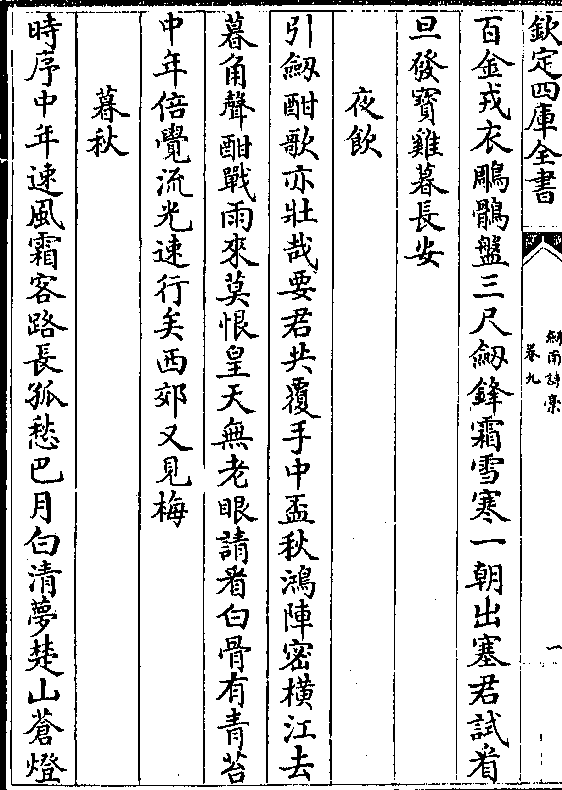 欽定四庫全書
劍南詩藁
卷九
一
百金戎衣鵰鶻盤三尺劒鋒霜雪寒一朝出塞君試看
旦發寳雞暮長安
夜飲
引劒酣歌亦壯哉要君共覆手中盃秋鴻陣密横江去
暮角聲酣戰雨來莫恨皇天無老眼請看白骨有青苔
中年倍覺流光速行矣西郊又見梅
暮秋
時序中年速風霜客路長孤愁巴月白清夢楚山蒼燈